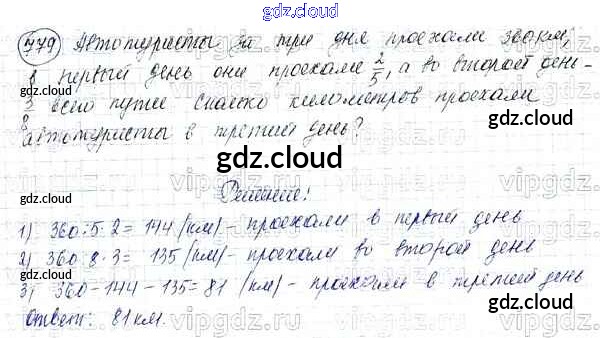 gdz.cloud
779 Автотуристы за три дня проехали 360 км,
в первый день они проехали 2/5, а во второй день -
3/8 всего пути. Сколько километров проехали
автотуристы в третий день?
gdz.cloud
Решение:
1) 360:5·2= 144 (км) - проехали в первый день
2) 360:8·3= 135 (км) - проехали во второй день
3) 360-144-135=81 (км) - проехали в третий день
Ответ: 81 км.
gdz.cloud